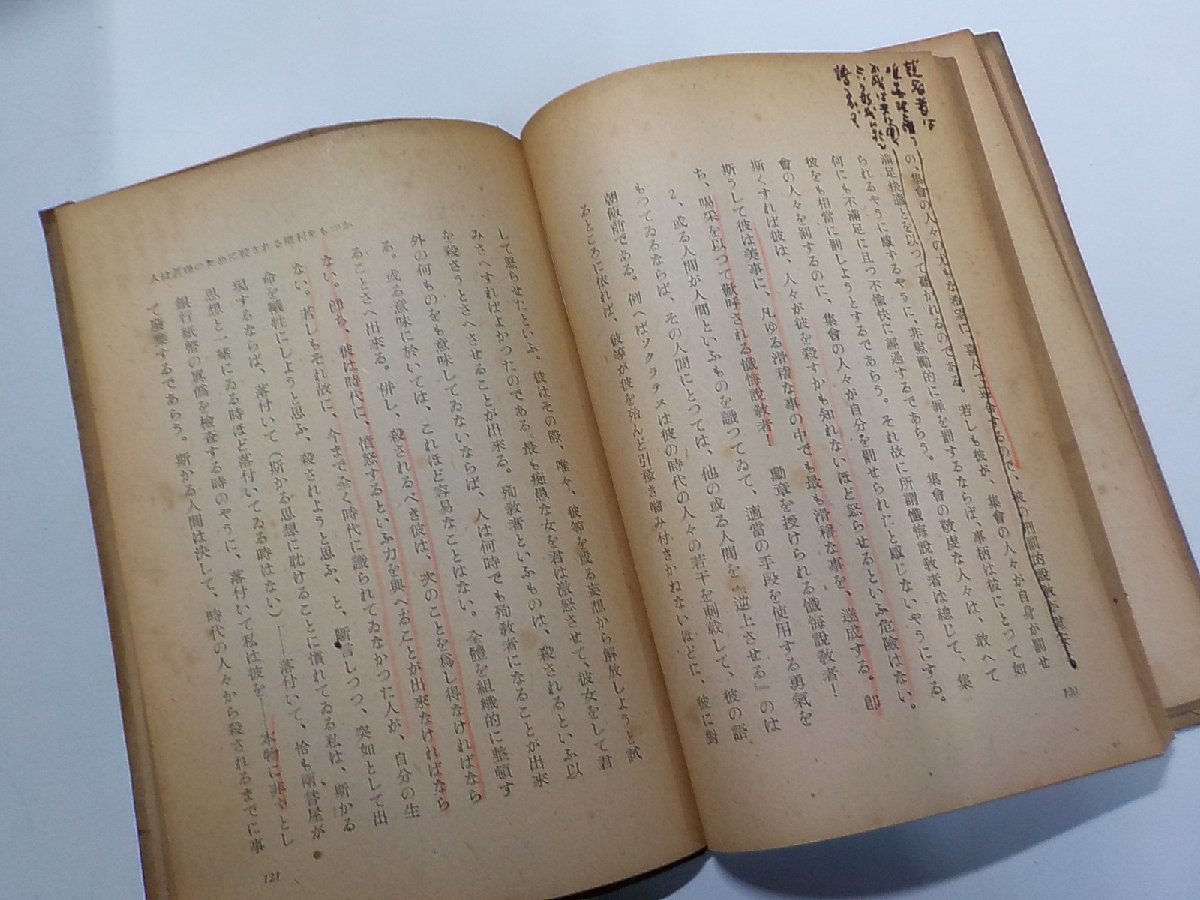 の、集會の人々の最も大なる希望に、喜んで迎合するもので、彼の所謂説教が
滿足快適とを以つて聽かれるのである。若しも彼が、集會の人々が自身が罰せ
られるやうに感ずるやうに、非比喩的に罪を罰するならば、事柄は彼にとつて如
何にも不滿足に且つ不愉快に經過するであらう。集會の敬虔な人々は、敢へて
彼をも相當に罰しようとするであらう。それ故に所謂懺悔説教者は總じて、集
會の人々を罰するのに、集會の人々が自分を罰せられたと感じないやうにする。
斯くすれば彼は、人々が彼を殺すかも知れないほど怒らせるといふ危險はない。
斯うして彼は美事に、凡ゆる滑稽な事の中でも最も滑稽な事を、達成する。卽
ち、喝采を以つて歡呼される懺悔説教者! 勳章を授けられる懺悔説教者!
2、或る人間が人間といふものを識つてゐて、適當の手段を使用する勇氣を
もつてゐるならば、その人間にとつては、他の或る人間を『逆上させる』のは
朝飯前である。例へばソクラテスは彼の時代の人々の若干を刺戟して、彼の話
るところに依れば、彼等が彼を殆んど引搔き嚙み付きかねないほどに、彼に對
130
して怒らせたといふ。彼はその際、唯々、彼等を或る妄想から解放しようと試
みさへすればよかつたのである。最も痴愚な女を君は激怒させて、彼女をして君
を殺さうとさへさせることが出來る。殉教者といふものは、殺されるといふ以
外の何ものをも意味してゐないならば、人は何時でも殉教者になることが出來
る。或る意味に於いては、これほど容易なことはない。全體を組織的に整頓す
ることさへ出來る。併し、殺されるべき彼は、次のことを爲し得なければなら
ない。卽ち、彼は時代に、憤怒するといふ力を與へることが出來なければなら
ない。若しもそれ故に、今まで全く時代に識られてゐなかつた人が、自分の生
命を犧牲にしようと思ふ、殺されようと思ふ、と、斷言しつつ、突如として出
現するならば、落付いて(斯かる思想に耽けることに慣れてゐる私は、斯かる
思想と一緒にゐる時ほど落付いてゐる時はない)――落付いて、恰も兩替屋が
銀行紙幣の眞僞を檢査する時のやうに、落付いて私は彼を――本物に非ずとし
て廢棄するであらう。斯かる人間は決して、時代の人々から殺されるまでに事
人は眞理のために殺される權利をもつか
121